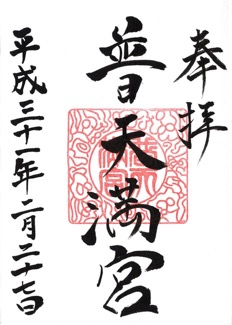 奉拝
普天満宮
平成三十一年二月二十七日